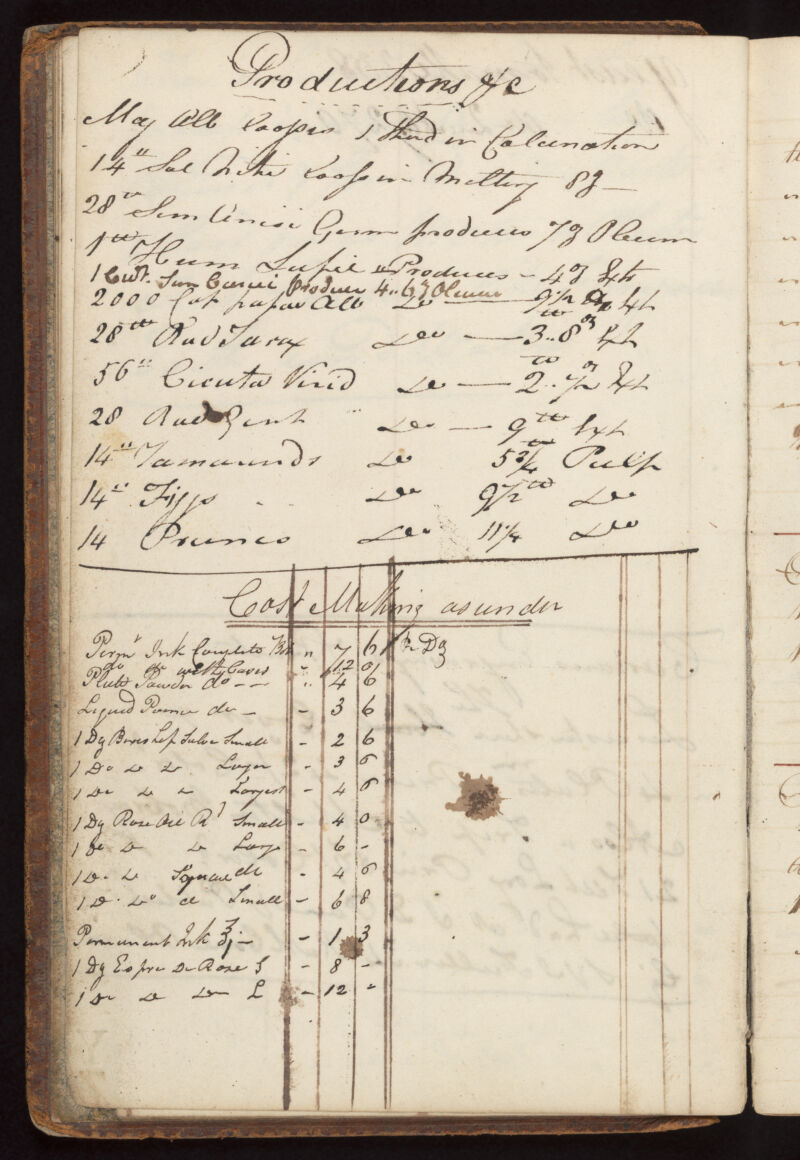 Productions &c
Mag Alb looses 1 Third in Calcination
14" Sal Nitri loose in Melting 8ʒ —
28" Sem Anisi Germ produces 7ʒ Oleum
1 Hum Lupli " Produces - 4ʒ Ext
1 Cwt. Sem Carui Produce 4..6ʒ Oleum
2000 Cap papav Alb Do — 9½ Ext
28 lb Rad Tarax Do — 3..8 oz Ext
56" Cicuta Virid Do — 2..7½ oz Ext
28 Rad Gent Do — 9 lb Ext
14" Tamarinds Do 5¾ lb Pulp
14" Figgs Do 9½ lb Do
14 Prunes Do 11¼ Do
Cost Making as under
Permt Ink Complete " 7 6 Pr Dz
do do with Caves " 12 0
Plate Powder do — " 4 6
Liquid do - - 3 6
1 Dz Boxes Lip Salve Small - 2 6
1 Do Do Do Larger - 3 6
1 Do Do Do Largest - 4 6
1 Dz Rose Oil Rd Small - 4 0
1 Do Do Do Large - 6 -
1 Do Do Square do - 4 6
1 Do Do do Small - 6 8
Permanent Ink ʒj - - 1 3
1 Dz Esprs De Rose S - 8 -
1 Do Do Do L - 12 -